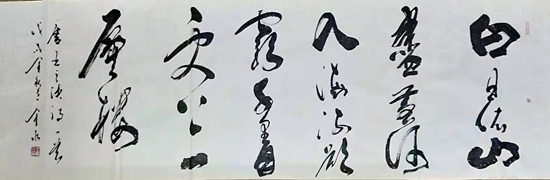 白日依山
盡黃河
入海流欲
窮千里目
更上一
層樓
唐王之渙詩一首
戊戌年